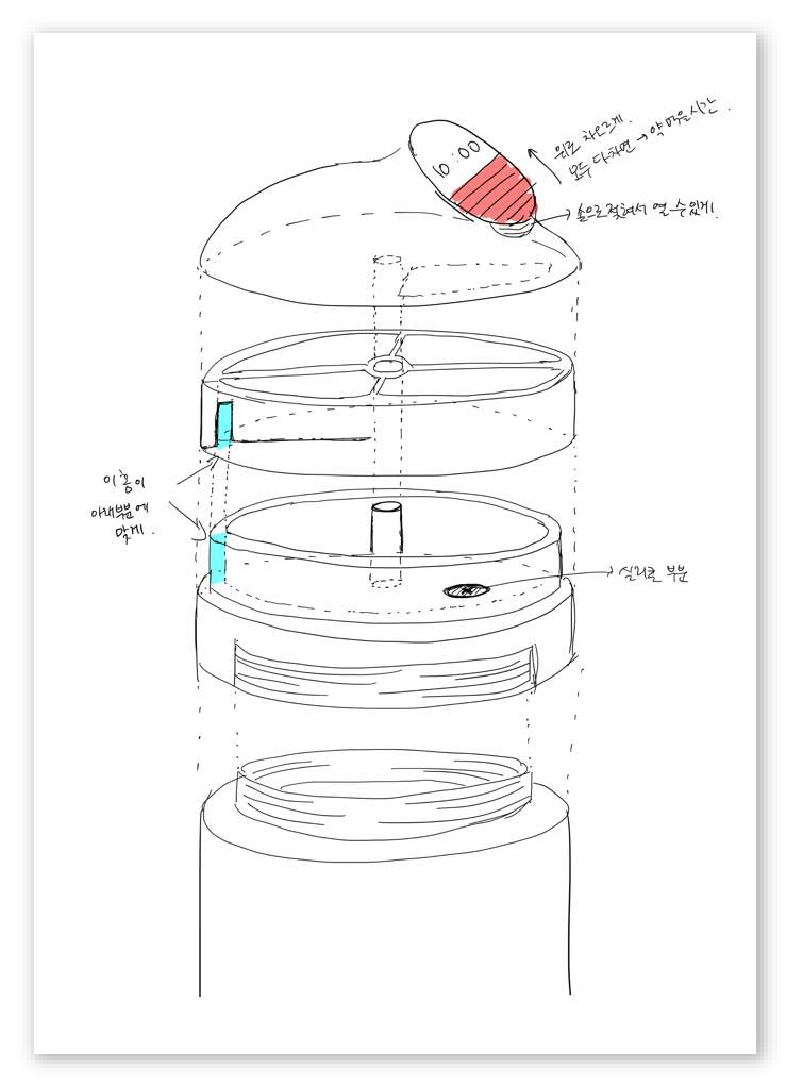 10:00
위로 차오르게.
모두 다차면 → 약 먹을 시간.
손으로 젖혀서 열 수 있게.
이 홈이
아래부분에
맞게.
실리콘 부분